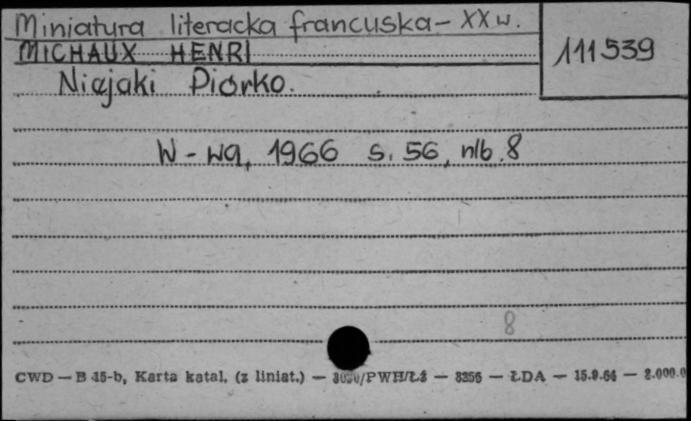 Miniatura literacka francuska - XX w.
MICHAUX HENRI
111539
Niejaki Piórko.
W-wa, 1966 s. 56, nlb. 8
8
CWD — B 15-b, Karta katal. (z liniat.) — /PWH/Łź — 8256 — ŁDA — 15.9.64 — 2.000.0